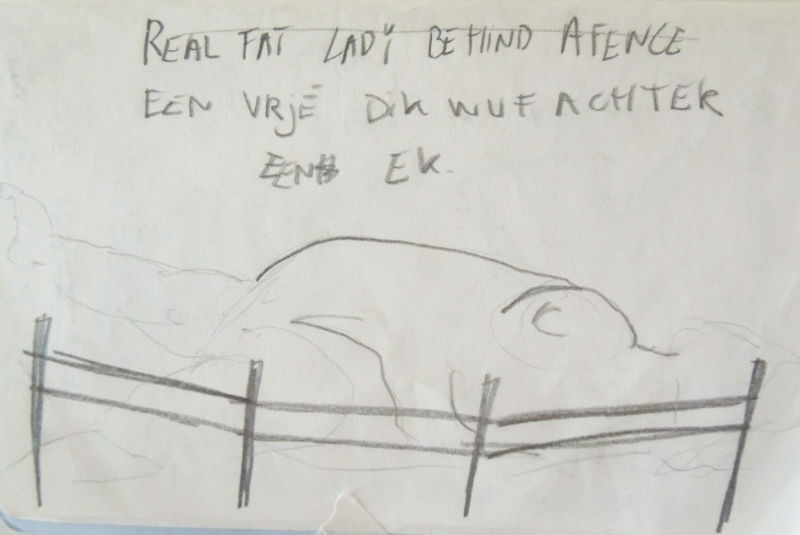 REAL FAT LADY BEHIND A FENCE
EEN VRJÉ DIK WUF ACHTER
EEN EK.